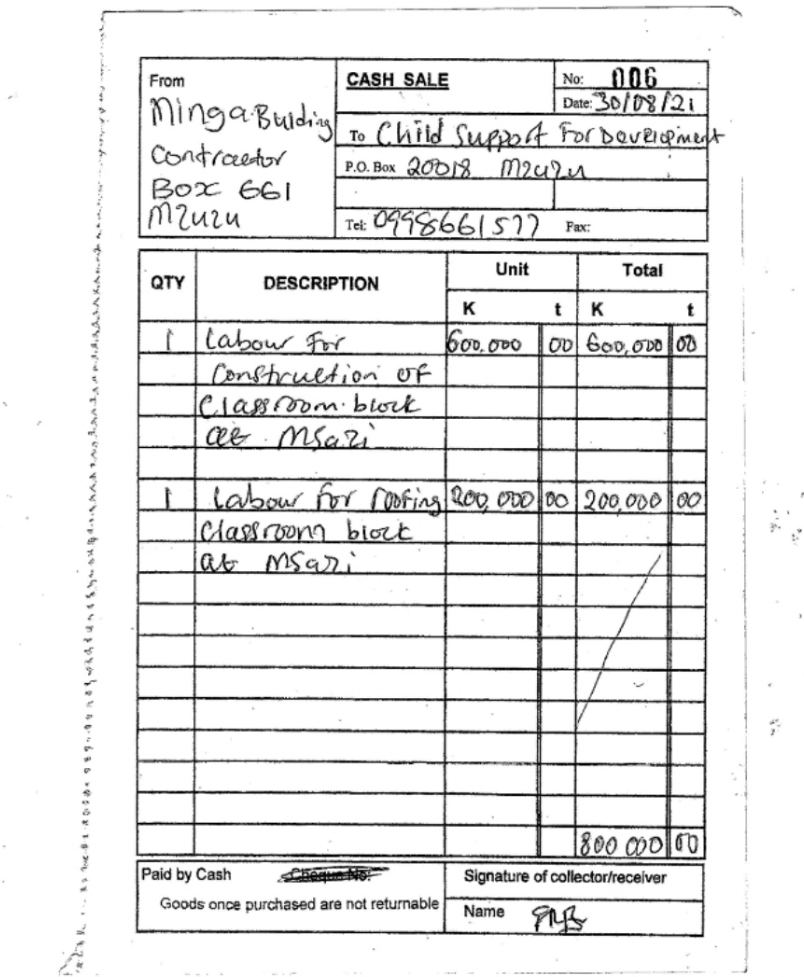 From
Minga Building
Contractor
Box 661
Mzuzu
CASH SALE
No: 006
Date: 30/08/21
To Child Support For Development
P.O. Box 20018 Mzuzu
Tel: 0998661577 Fax:
QTY DESCRIPTION Unit Total
K t K t
1 Labour For 600,000 00 600,000 00
Construction OF
Classroom block
at Msazi
1 Labour For roofing 200,000 00 200,000 00
Classroom block
at Msazi
800 000 00
Paid by Cash Cheque No: Signature of collector/receiver
Goods once purchased are not returnable
Name